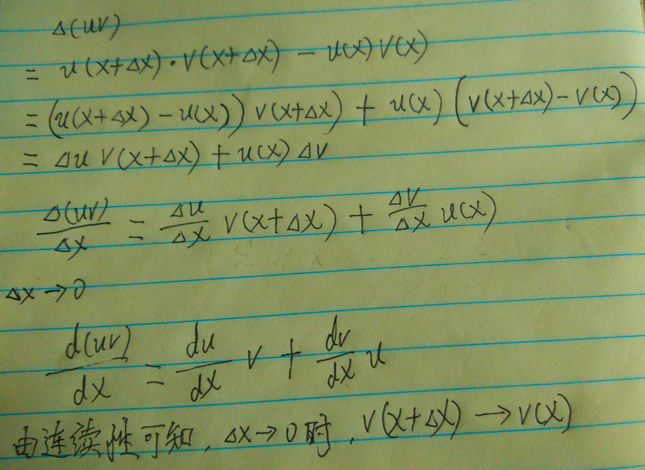 Δ(uv)
= u(x+Δx)·v(x+Δx) − u(x)v(x)
= (u(x+Δx) − u(x)) v(x+Δx) + u(x) (v(x+Δx) − v(x))
= Δu v(x+Δx) + u(x) Δv
Δ(uv)/Δx = Δu/Δx v(x+Δx) + Δv/Δx u(x)
Δx → 0
d(uv)/dx = du/dx v + dv/dx u
由连续性可知, Δx → 0 时, v(x+Δx) → v(x)